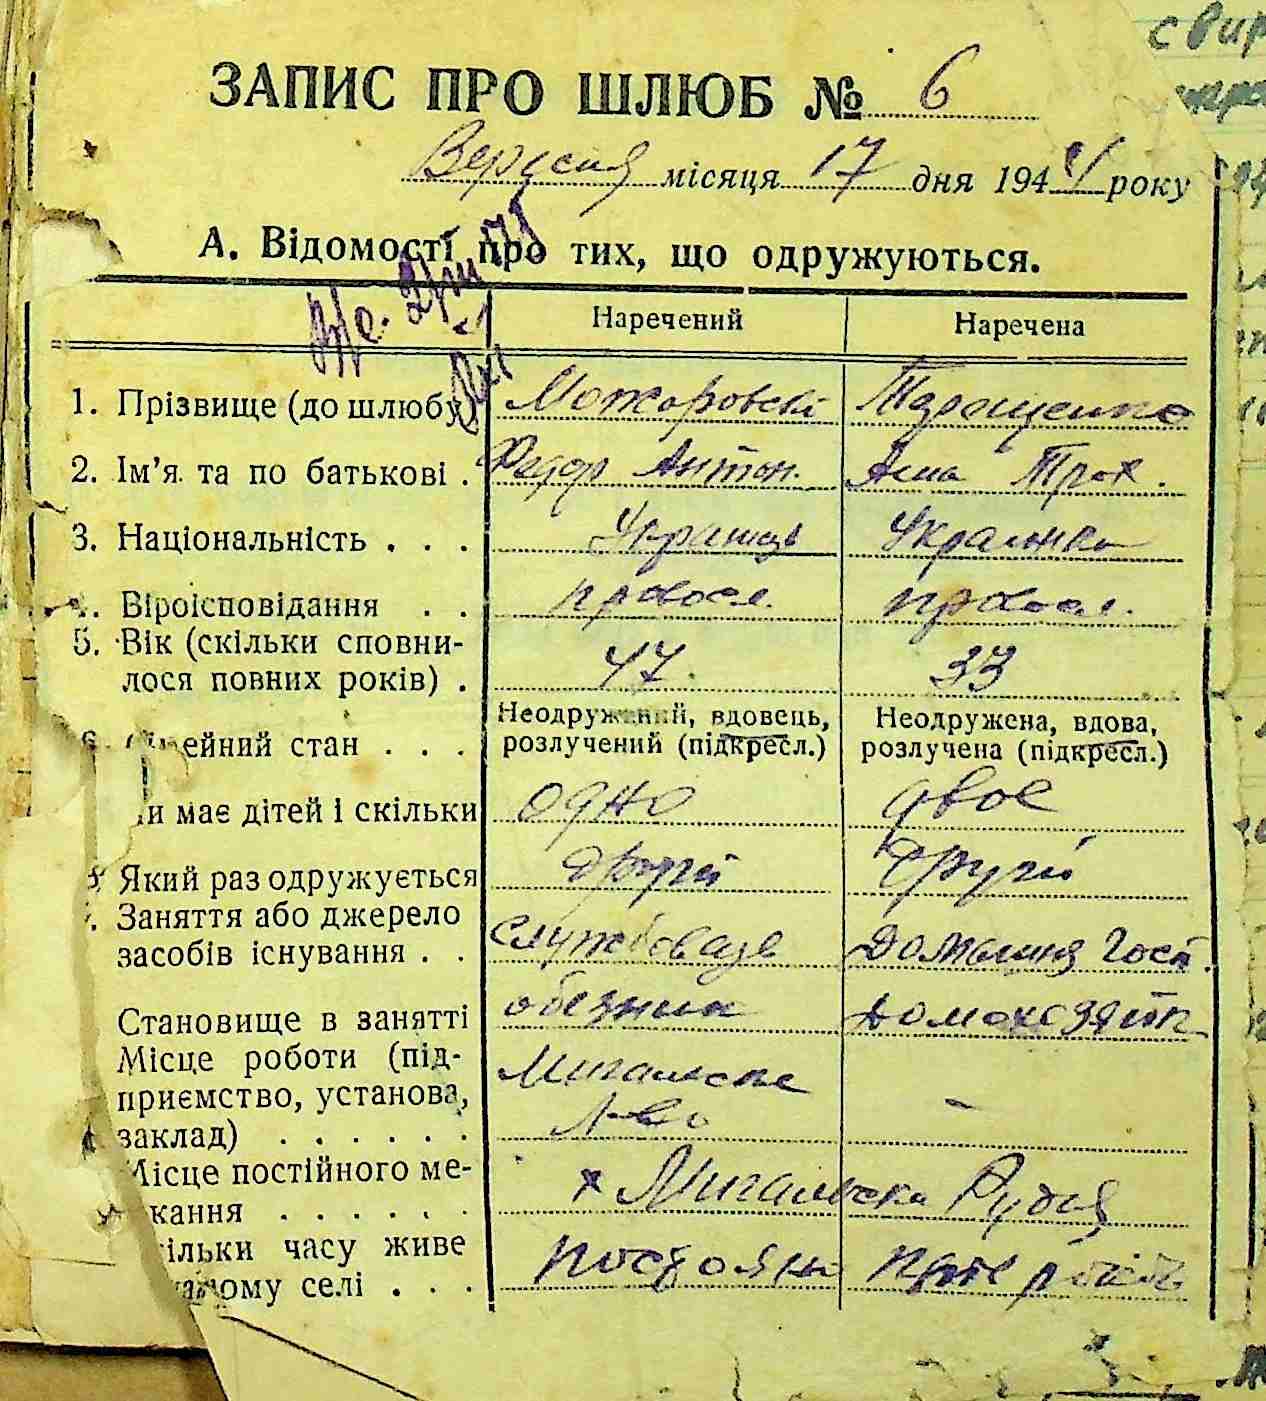 ЗАПИС ПРО ШЛЮБ № 6
Вересня місяця 17 дня 194 року
А. Відомості про тих, що одружуються.
Наречений Наречена
1. Прізвище (до шлюбу) Можаровскі Тарощенко
2. Ім'я та по батькові . Федор Антон. Анна Трох.
3. Національність . . . Українець Українка
Віроісповідання . . правосл. правосл.
5. Вік (скільки сповни-
лося повних років) . 47 33
Неодружений, вдовець, Неодружена, вдова,
ейний стан . . . розлучений (підкресл.) розлучена (підкресл.)
и має дітей і скільки одно двое
Який раз одружується другий другий
Заняття або джерело
засобів існування . . службовець Домашня Госп.
Становище в занятті обезник домохозяйк
Місце роботи (під-
приємство, установа,
заклад) . . . . . . -
Місце постійного ме-
кання . . . . . . х Мигальска Рудня
ільки часу живе
ому селі . . . постояно